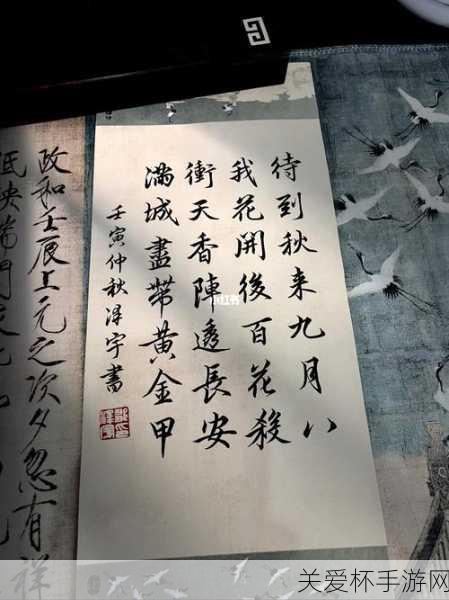 待到秋来九月八
我花開後百花殺
衝天香陣透長安
满城盡帶黄金甲
壬寅仲秋宇書
小红书
政和壬辰上元之次夕忽有祥
低映端門
关爱杯手游网